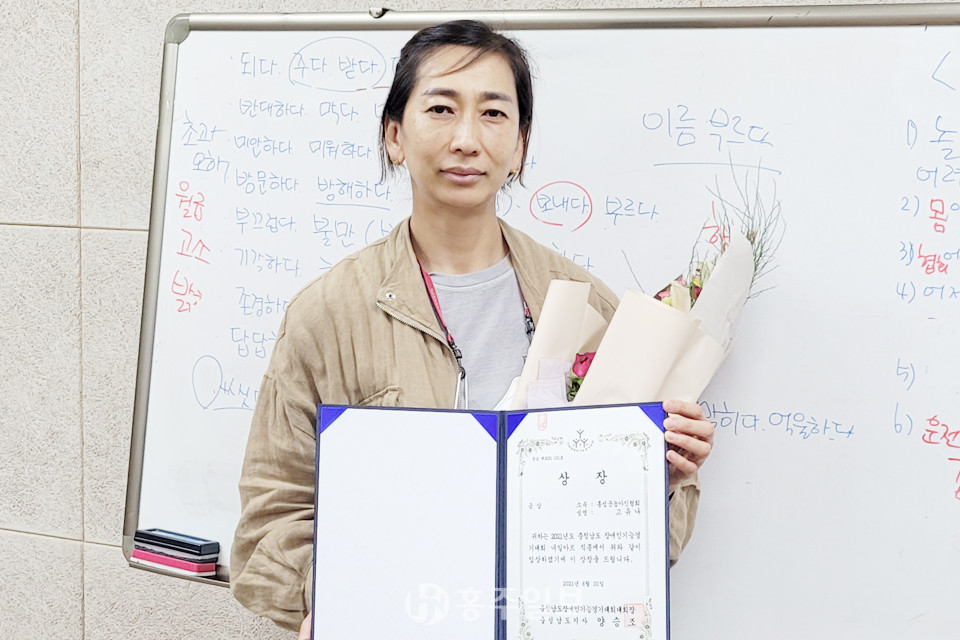 되다. 주다 받다.
반대하다. 막다.
초과
오해?
미안하다. 미워하다
이름 부르다
방문하다. 방해하다.
월급
보내다. 부르다.
부끄럽다. 불만
고소
기각하다.
존경하다
답답
막히다. 억울하다
1)
어려
2) 몸
3) 협회에
4) 어저
5)
6) 운전
상 장
금 상
소 속 : 홍성군농아인협회
성 명 : 고 유 나
위자는 2021년도 충청남도 장애인기능경
기대회 네일아트 직종에서 위와 같이
입상하였기에 이 상장을 드립니다.
충청남도장애인기능경기대회대회장
충청남도지사 양승조
홍주일보